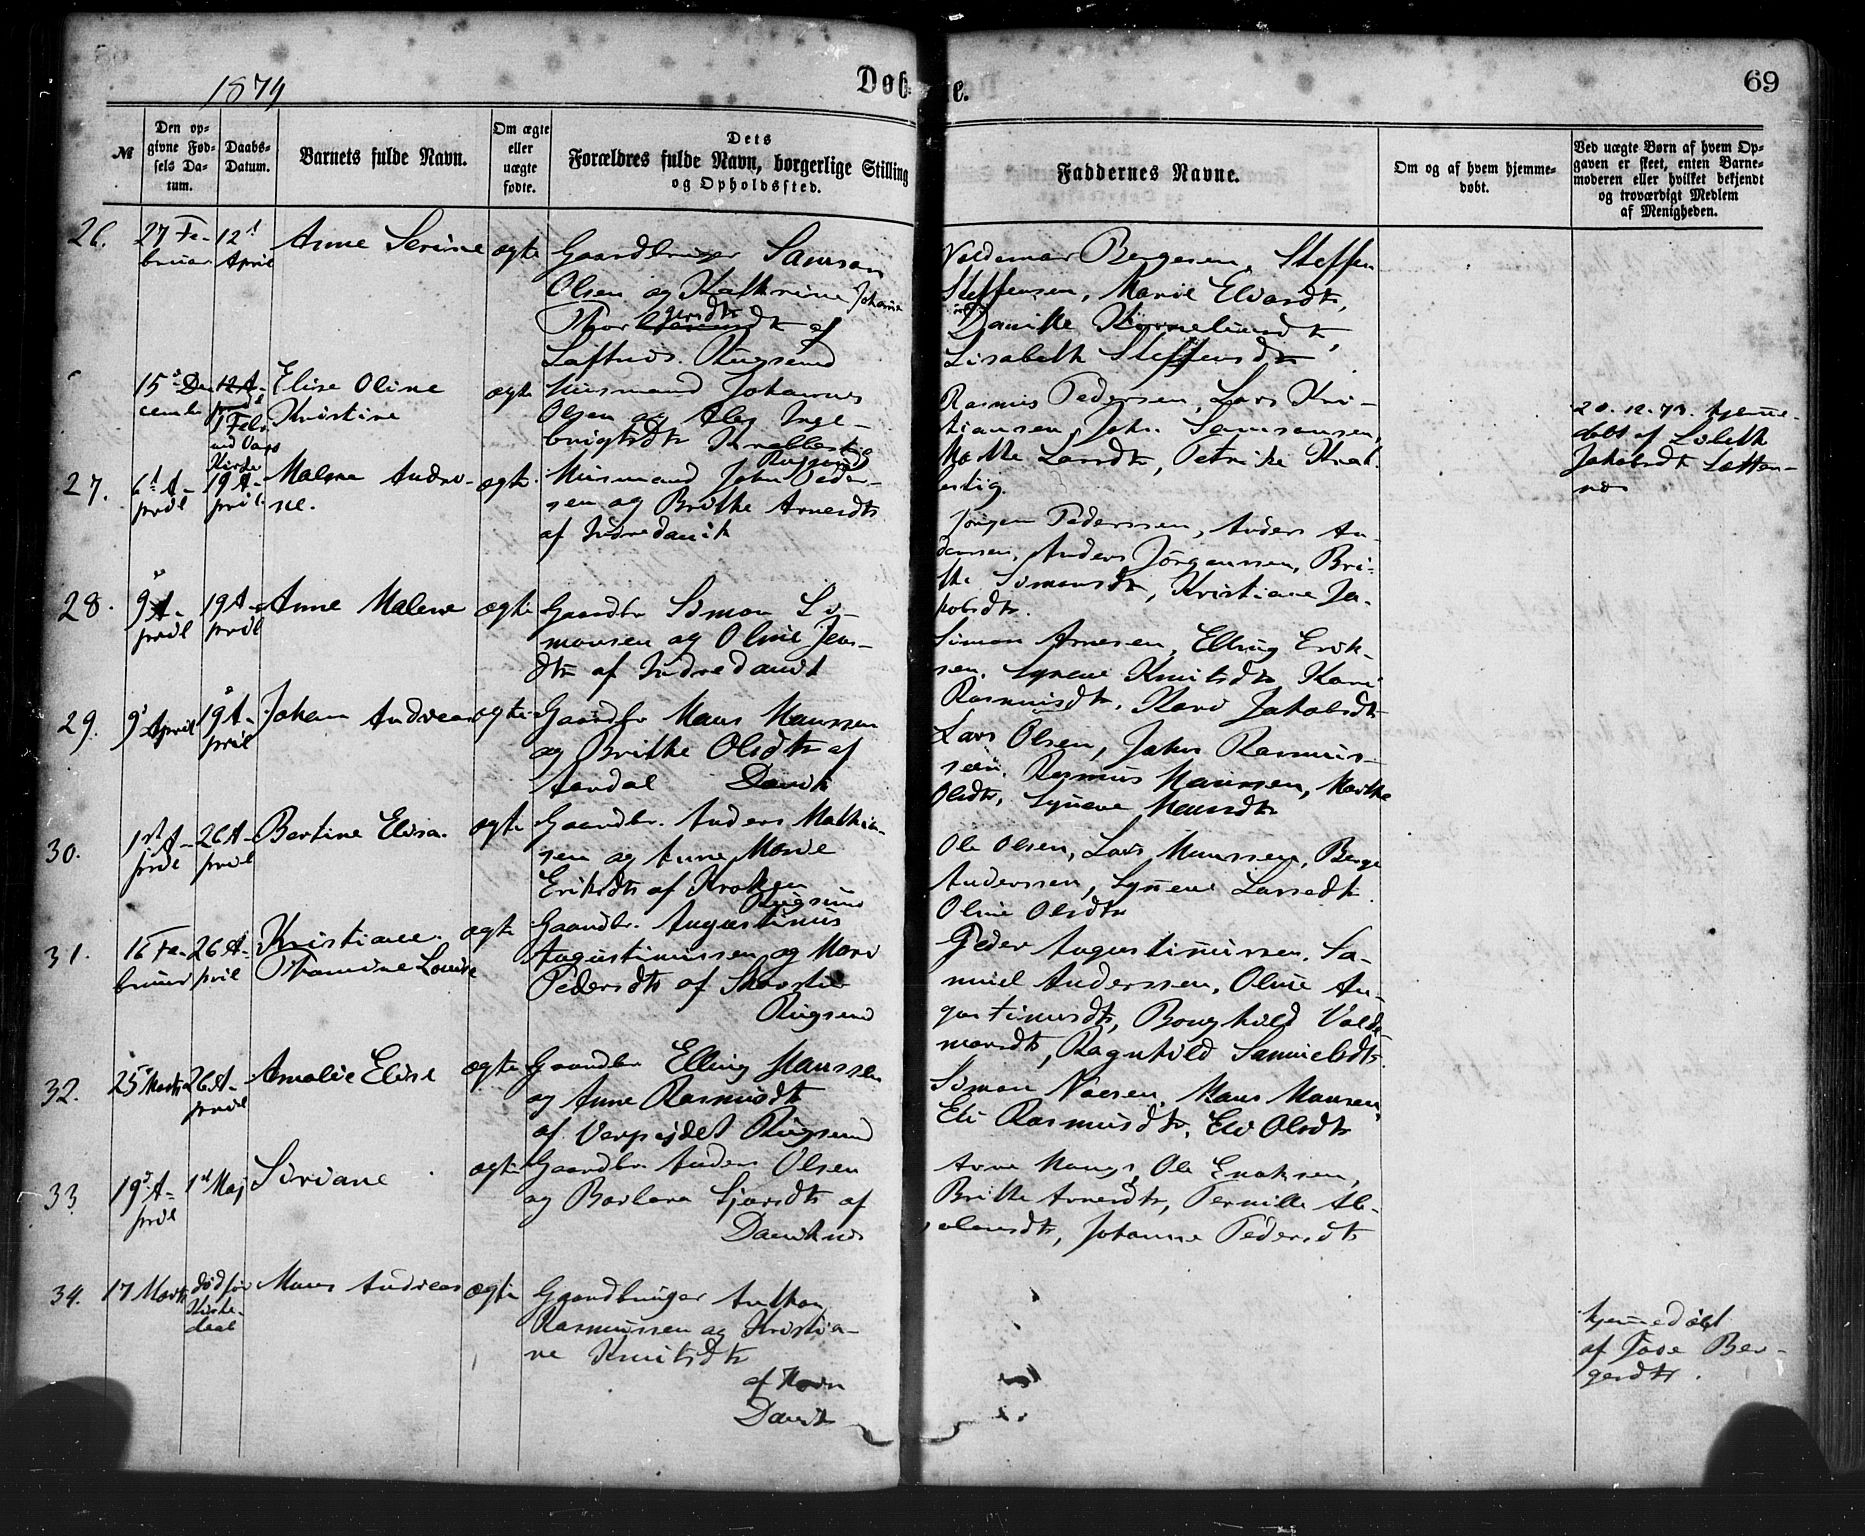 1874
Døbte.
69
№
Den opgivne Fødsels Datum.
Daabs-Datum.
Barnets fulde Navn.
Om ægte eller uægte fødte.
Dets Forældres fulde Navn, borgerlige Stilling og Opholdssted.
Faddernes Navne.
Om og af hvem hjemmedøbt.
Ved uægte Børn af hvem Opgaven er skeet, enten Barnemoderen eller hvilket bekjendt og troværdigt Medlem af Menigheden.
26.
27 Fe-
bruar
12t
April
Anne Serine
ægte
Gaardbruger Samson
Olsen og Kathrine Johanne
af
Rugsund
Valdemar Bergesen, Steffen
Steffensen, Marie
Danikke
Lisabeth Steffensdtr
15de De
cember
12 A-
1 Feb.
Kirke
Elise Oline
Kristine
ægte
Husmand Johannes
Olsen og Inge-
brigtsdtr
Rugsund
Rasmus Pedersen, Lars Kri-
stiansen, Joh. Samsonsen,
Marthe Larsdtr, Petrike
20.12.73. hjemme-
døbt af Lisbeth
Jakobsdtr
27.
6t A-
pril
19 A-
pril
Malene Andri-
ne.
ægte
Husmand John Peder-
sen og Brithe Arnesdtr
af Indredavik
Jørgen Pederssen, Anders An-
derssen, Anders Jørgenssen, Bri-
the Simonsdtr, Kristiane Ja-
kobsdtr.
28.
9 A-
pril
19 A-
pril
Anne Malene
ægte
Gaardbr Simon Si-
monsen og Oline Jens-
dtr af Indredavik
Simon Arnesen, Elling Erik-
sen, Synneve Knutsdtr, Kari
Rasmusdtr, Kari Jakobsdtr
29.
9de April
19de A-
pril
Johan Andreas
ægte
Gaardbr Mons Monssen
og Brithe Olsdtr af
Aardal Davik
Lars Olsen, Jakob Rasmus-
sen, Rasmus Monssen, Marthe
Olsdtr, Synneve Monsdtr
30.
1st A-
pril
26 A-
pril
Bertine Elisa.
ægte
Gaardbr. Anders Mathia-
sen og Anne Marie
Eriksdtr af Kroken
Rugsund
Ole Olsen, Lars Monssen, Berge
Anderssen, Synneve Larsdtr
Oline Olsdtr
31.
16 Fe-
bruar
26 A-
pril
Kristiane
Thomine Louise
ægte
Gaardbr. Augustinus
Augustinussen og Mari
Pedersdtr af
Rugsund
Peder Augustinussen, Sa-
muel Anderssen, Oline Au-
gustinusdtr, Borghild Valde-
marsdtr, Ragnhild Samuelsdtr
32.
25 Marts
26 A-
pril
Amalie Elise
ægte
Gaardbr Elling Monssen
og Anne Rasmusdtr
af Rugsund
Simon Mons Monsen,
Eli Rasmusdtr, Eli Olsdtr
33.
19de A-
pril
1st Maj
Siriane
ægte
Gaardbr. Anders Olsen
og Barbara Sjursdtr af
Daviknes
Arne Ole Enoksen,
Brithe Arnesdtr, Pernille Ab-
solonsdtr, Johanne Pedersdtr
34.
17 Marts
død før
Kirke-
daab
Mons Andreas
ægte
Gaardbruger Anthon
Rasmussen og Kristia-
ne Knutsdtr
af
Davik
hjemmedøbt
af Ber-
gesdtr.